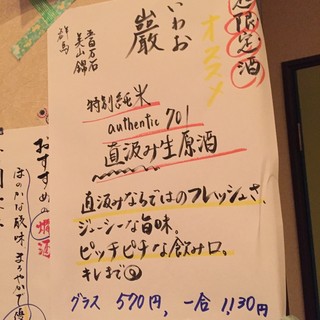 限定酒
オススメ
いわお
巖
五百万石
美山錦
群馬
特別純米
authentic 701
直汲み生原酒
直汲みならではのフレッシュさ、
ジューシーな旨味。
ピッチピチな飲み口。
キレまで
グラス 570円, 一合 1,130円
おすすめの燗酒
ほのかな酸味 まろやかで